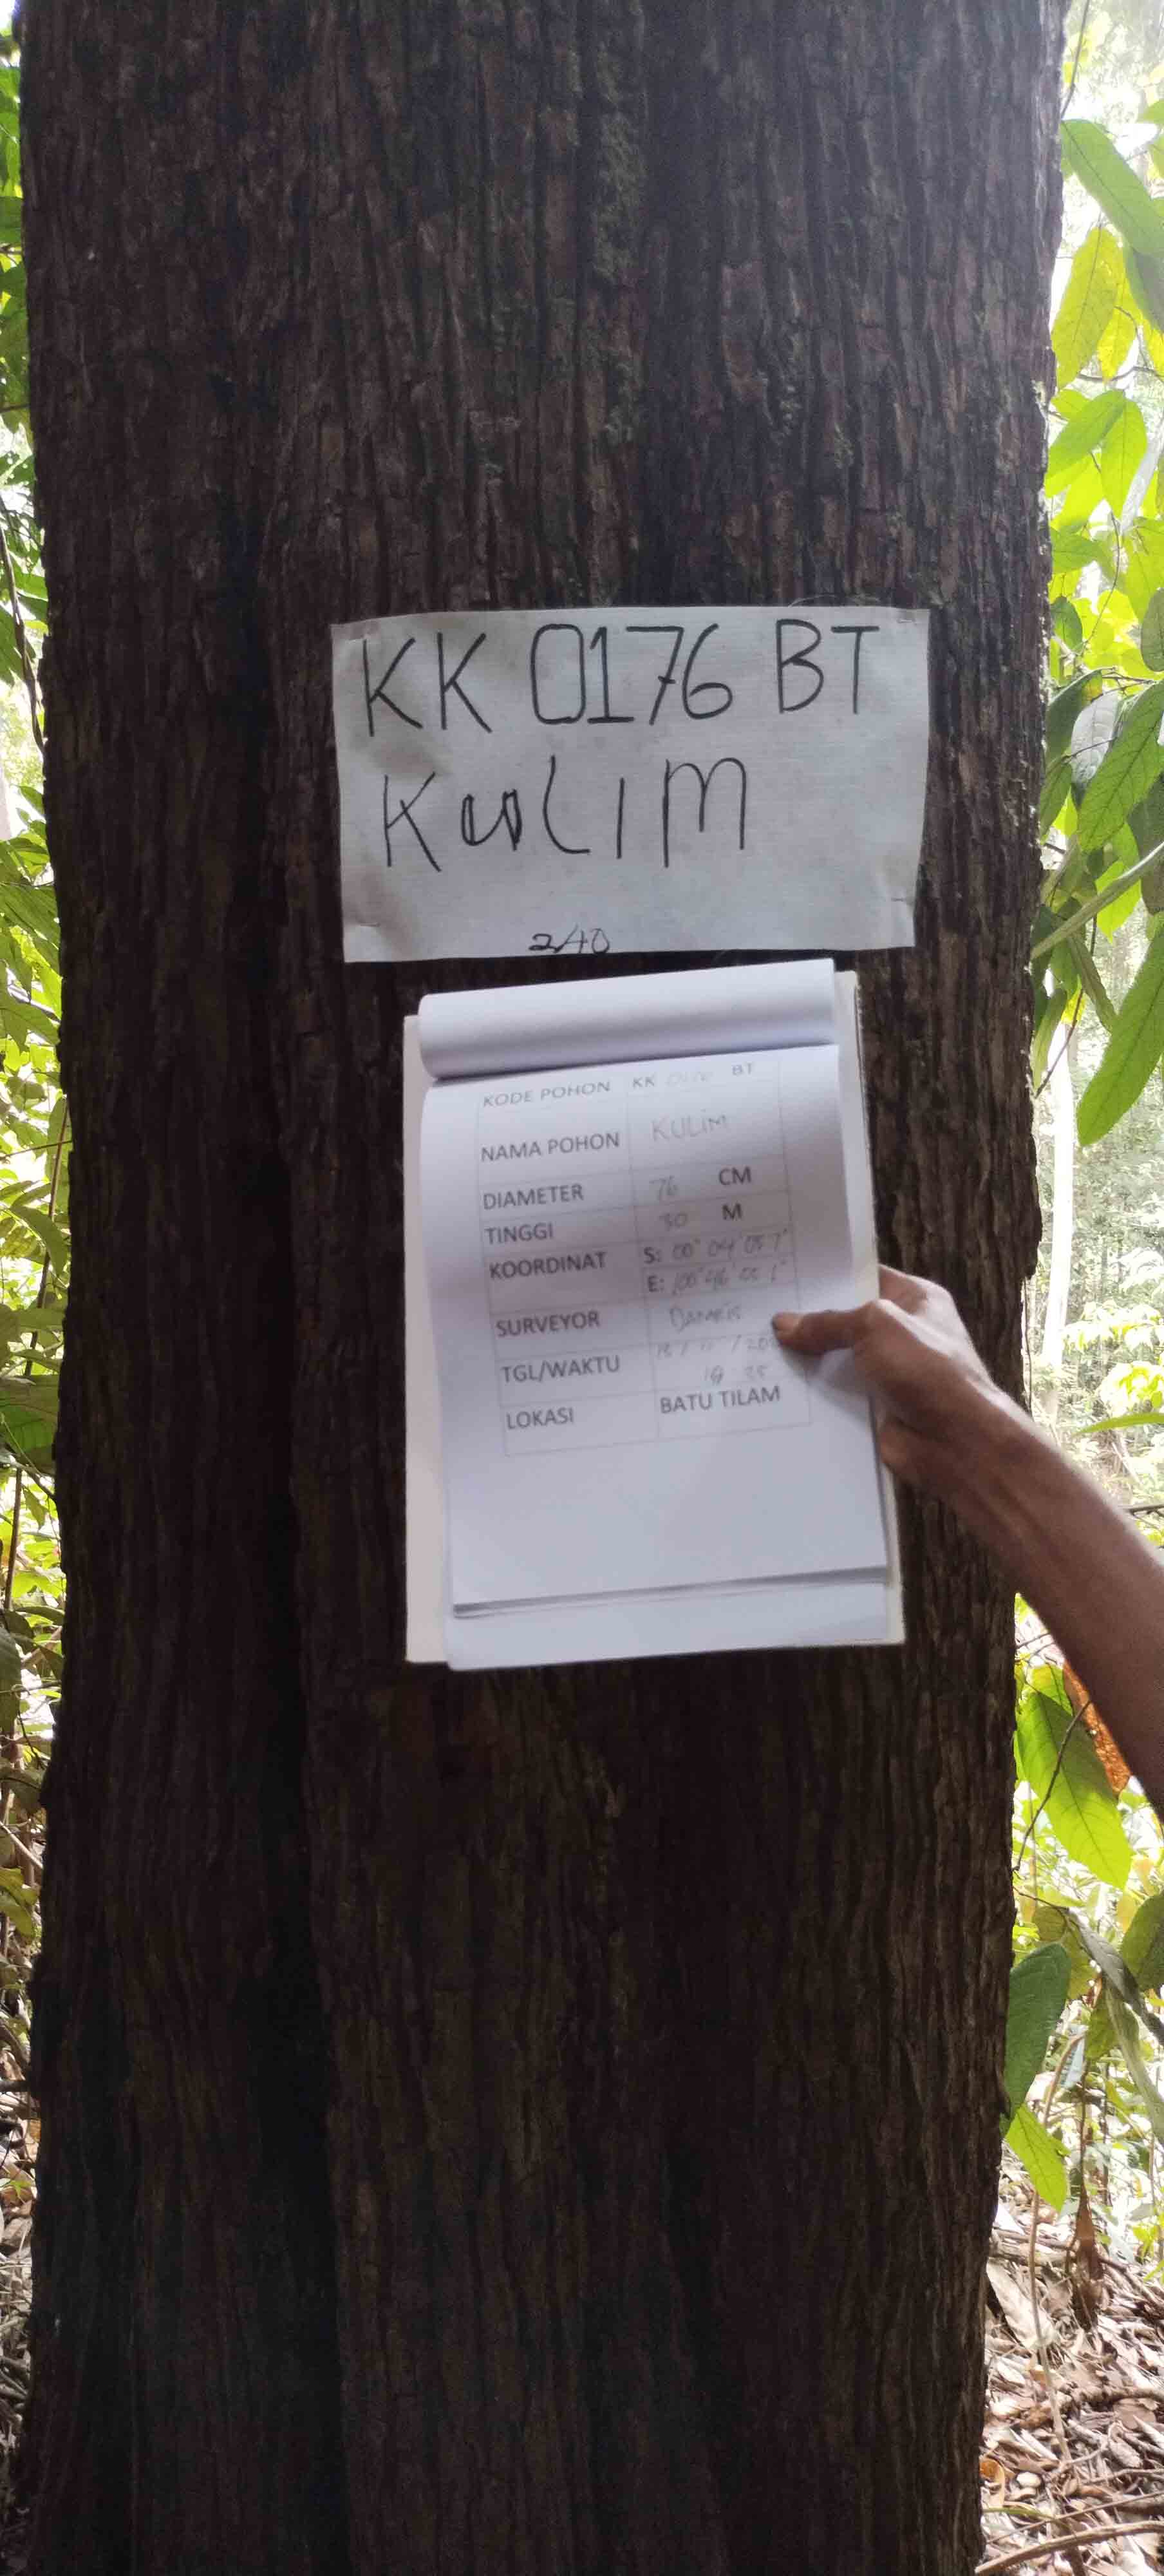 KK 0176 BT
KULIM
240
KODE POHON KK 0176 BT
NAMA POHON KULIM
DIAMETER 76 CM
TINGGI 30 M
KOORDINAT S: 00° 04'
E: 100° 46'
SURVEYOR
TGL/WAKTU
LOKASI BATU TILAM